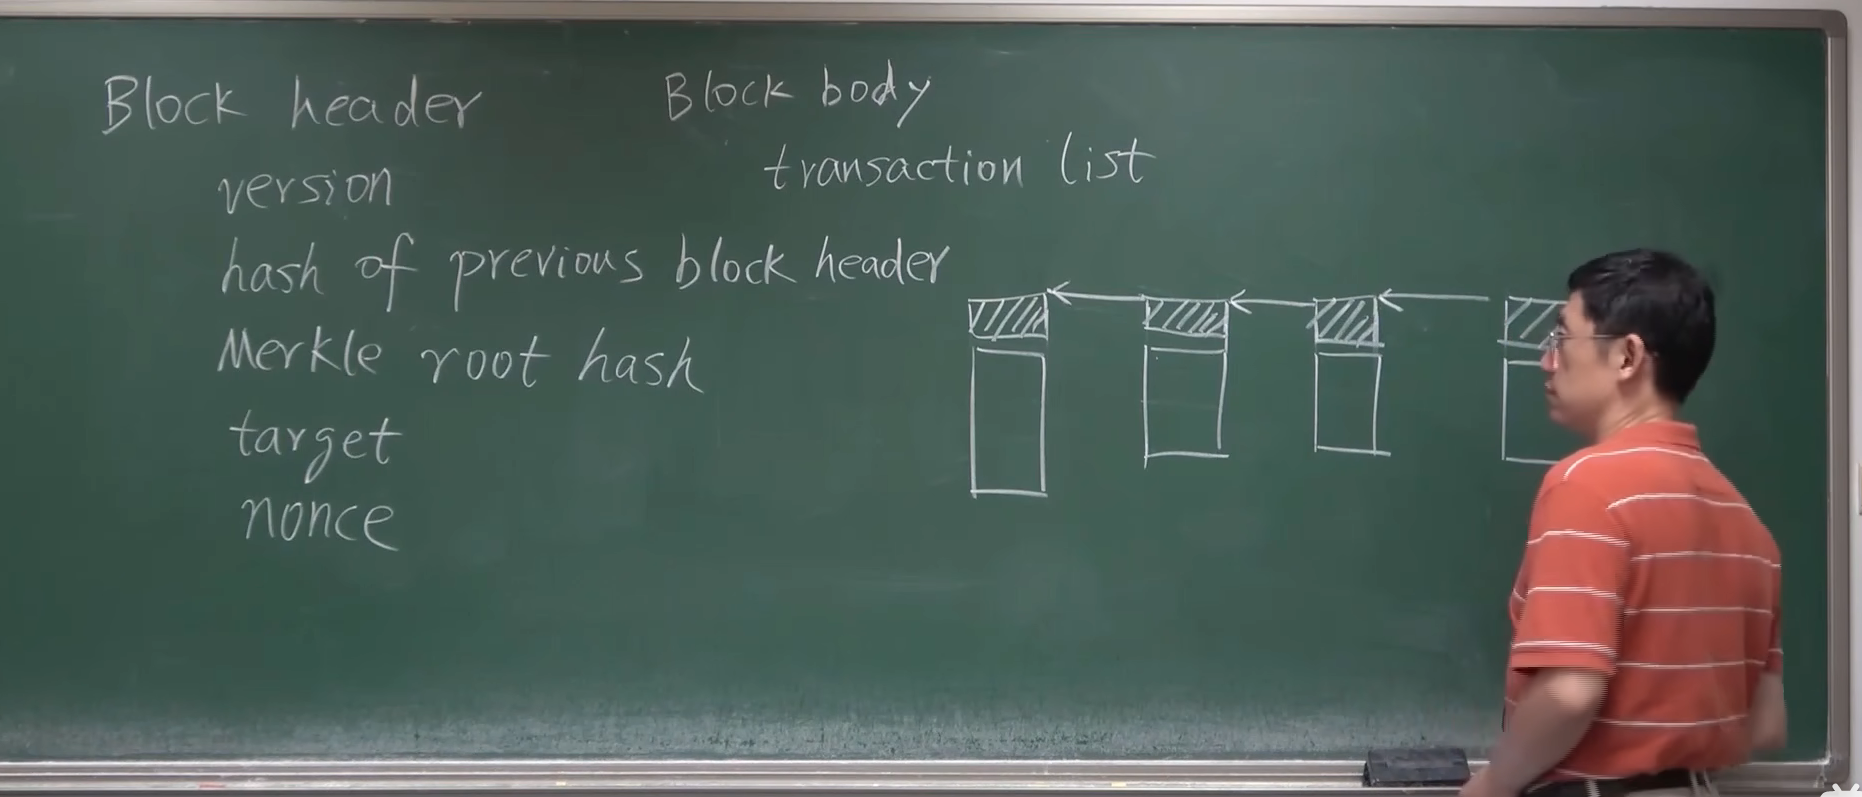 Block header
version
hash of previous block header
Merkle root hash
target
nonce
Block body
transaction list